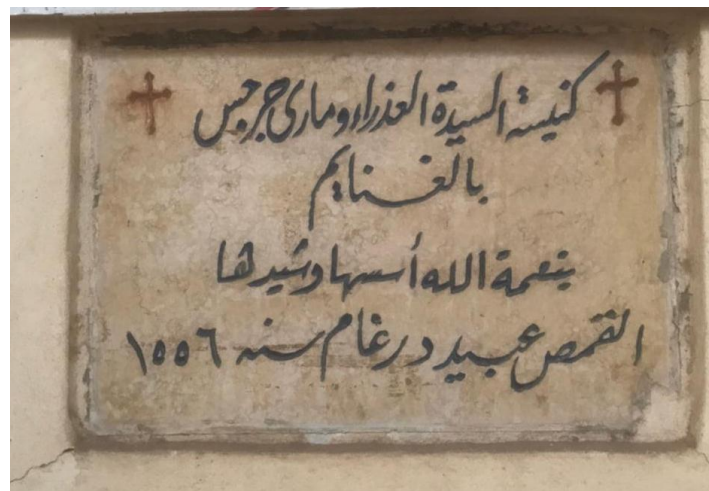 كنيسة السيدة العذراء ومارى جرجس
بالغنايم
بنعمة الله أسسها وشيدها
القمص عبيد درغام سنه ١٥٥٦